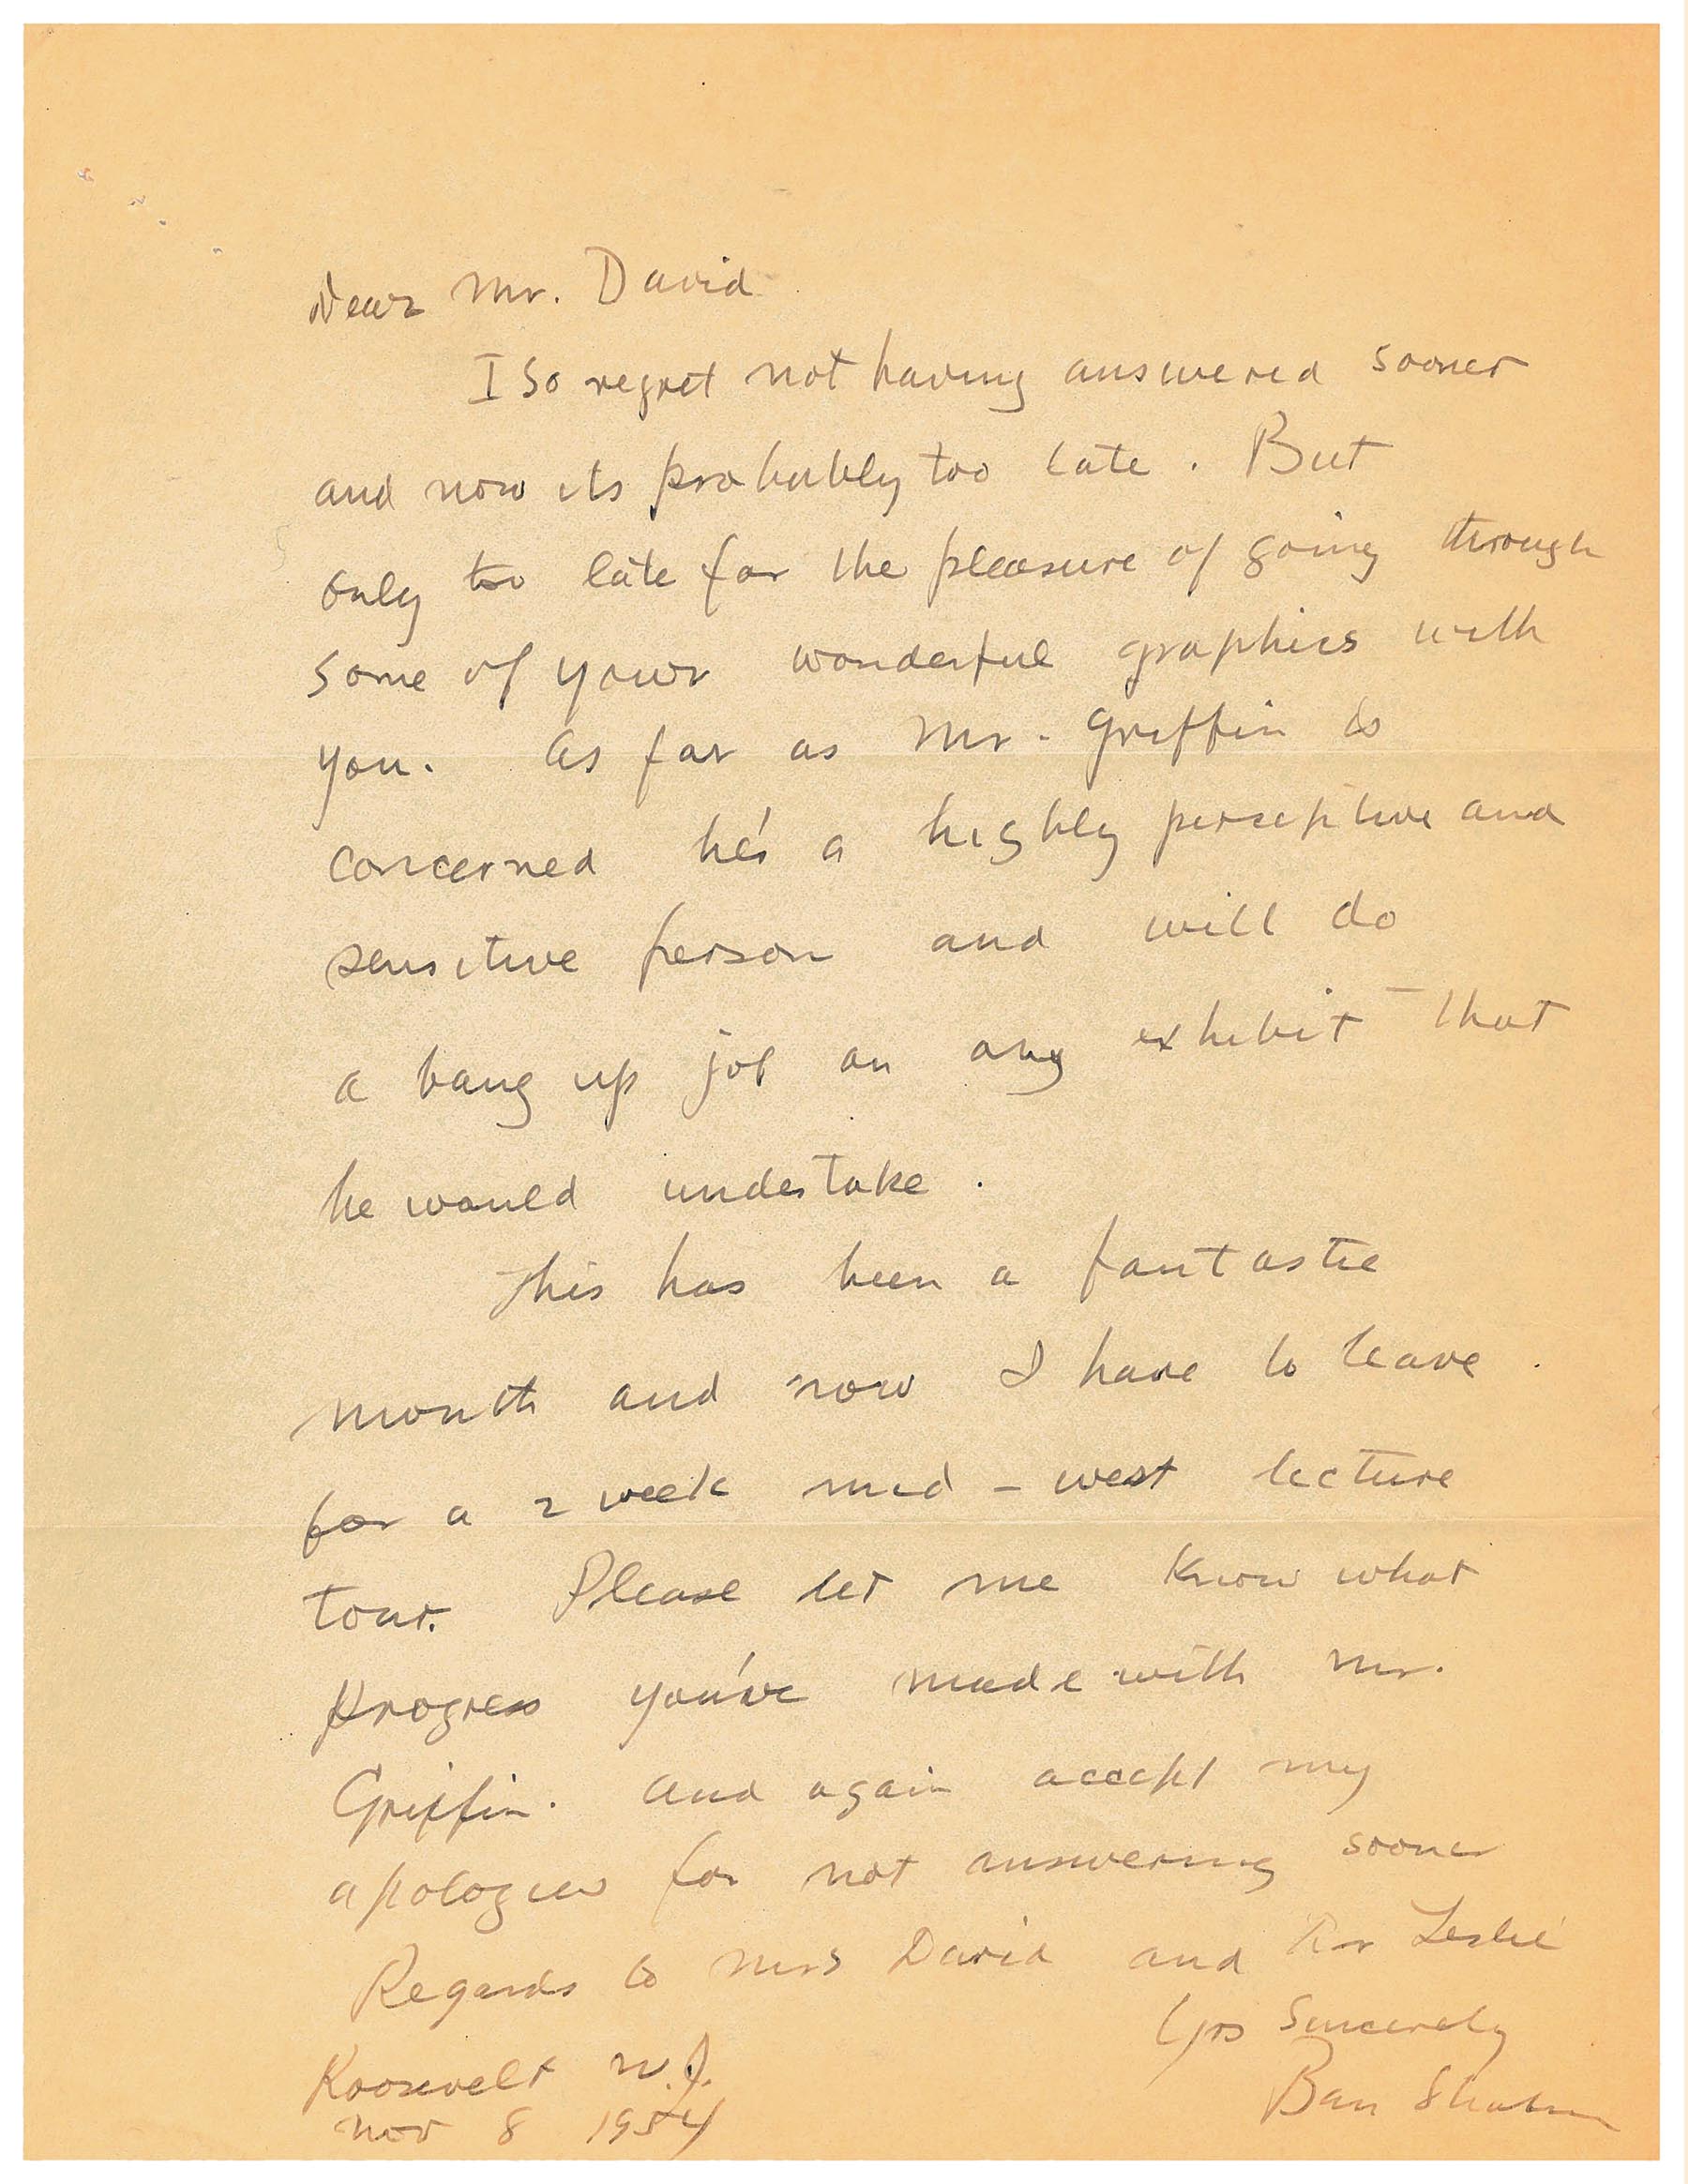 Dear Mr. David
I so regret not having answered sooner
and now its probably too late. But
only too late for the pleasure of going through
some of your wonderful graphics with
you. As far as Mr. Griffin is
concerned he's a highly perseptive and
sensitive person and will do
a bang up job on any exhibit that
he would undertake.
This has been a fantastic
month and now I have to leave
for a 2 week mid-west lecture
tour. Please let me know what
progress you've made with Mr.
Griffin. And again accept my
apologies for not answering sooner
Regards to Mrs David and Dr Leslie
Yrs Sincerely
Ben Shahn
Roosevelt N.J.
Nov 8 1954